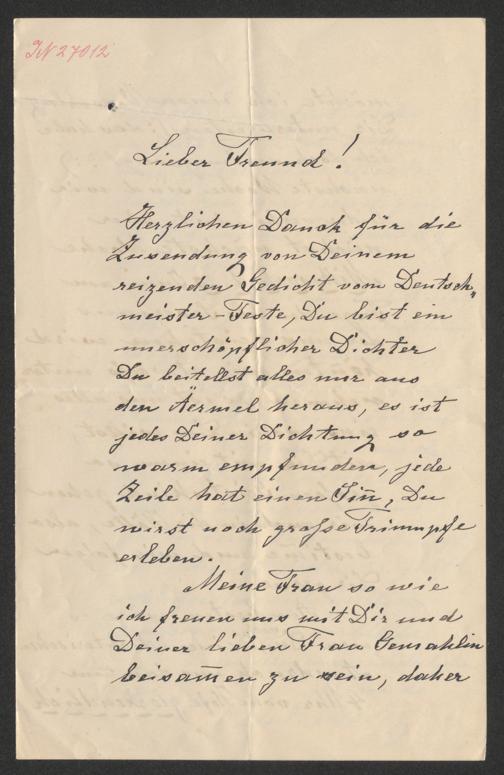 IN 27012
Lieber Freund!
Herzlichen Dank für die
Zusendung von Deinem
reizenden Gedicht vom Deutsch„
meister-Feste, Du bist ein
unerschöpflicher Dichter
Du beitellst alles nur aus
den Äermel heraus, es ist
jedes Deiner Dichtung so
warm empfunden, jede
Zeile hat einen Sin̄, Du
wirst noch große Triumpfe
erleben.
Meine Frau so wie
ich freuen uns mit Dir und
Deiner lieben Frau Gemahlin
beisam̄en zu sein, daher